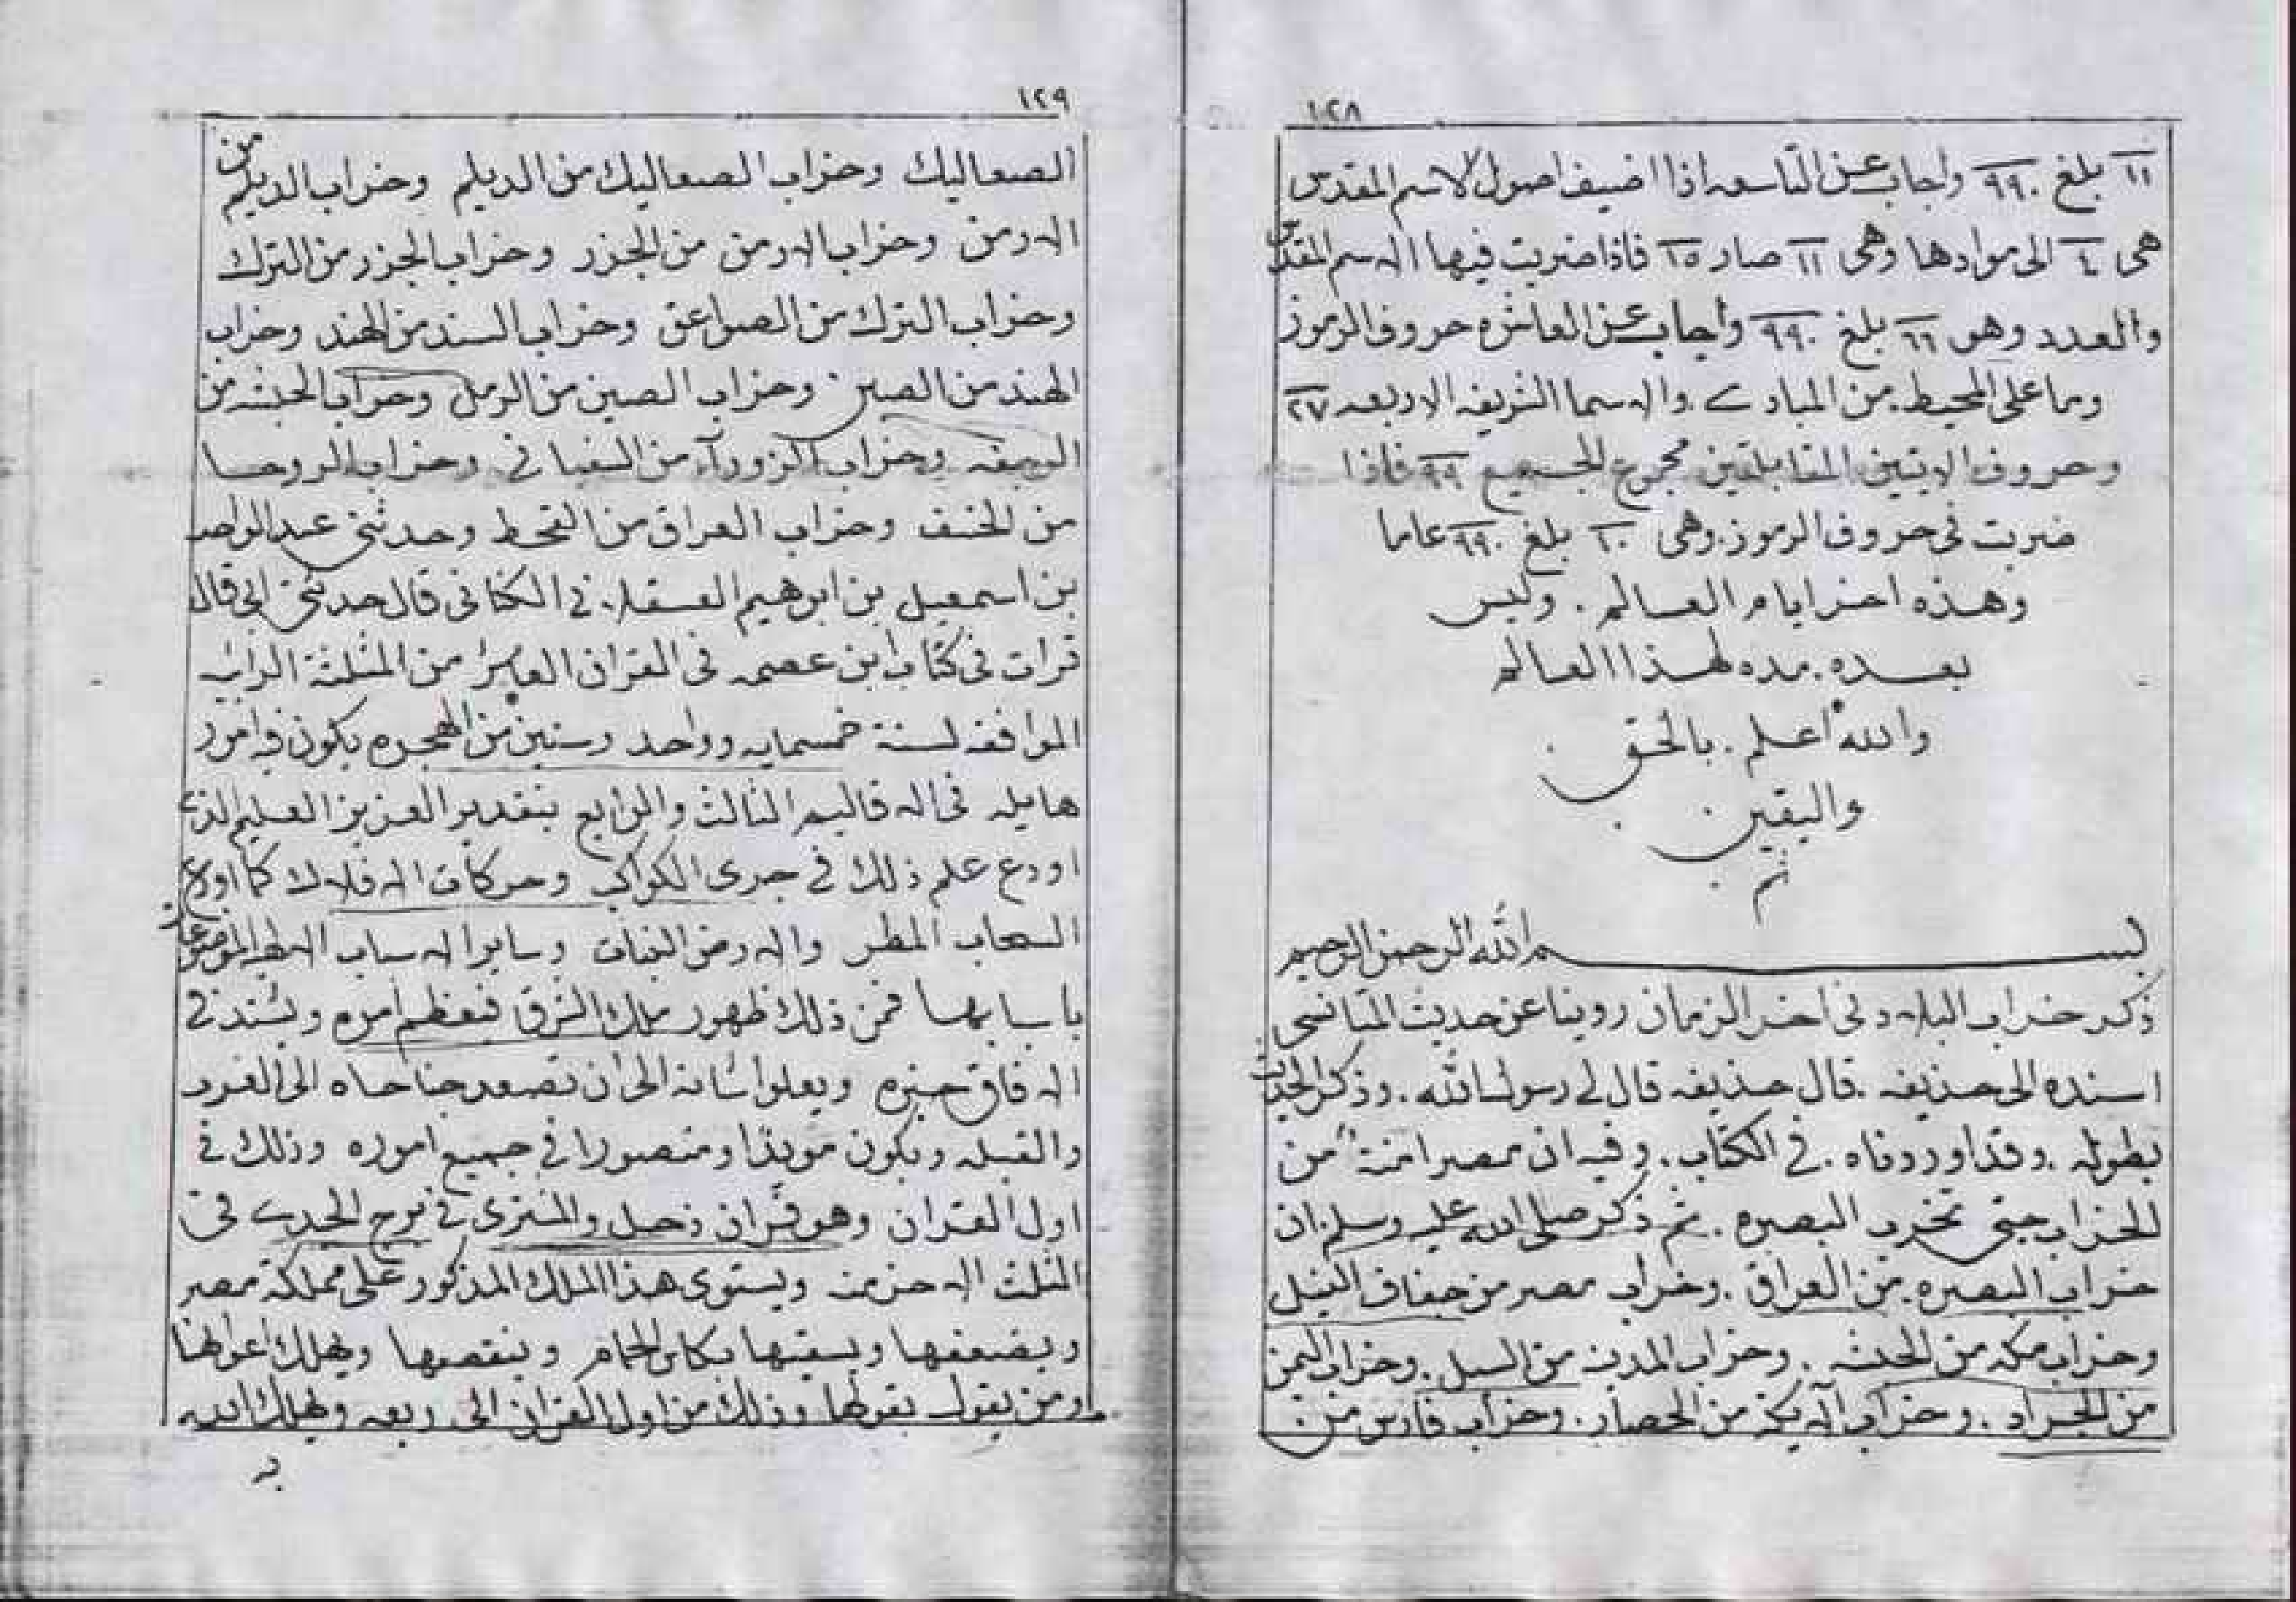 ١٢٨
١١ بلغ ٩٩٠ واجاب عن التاسعه اذا اضيف اصول الاسم المقدس
هى ٤ الى موادها وهى ١١ صار ١٥ فاذا ضربت فيها الاسم المقدس
والعدد وهو ٦٦ بلغ ٩٩٠ واجاب عن العاشره حروف الرموز
وما على المحيط من المبادي والاسما الشريفه الاربعه ٢٧
وحروف الايتين المتقابلتين مجموع الجميع ٩٩ فاذا
ضربت فى حروف الرموز وهى ١٠ بلغ ٩٩٠ عاما
وهذه اخر ايام العالم . وليس
بعده . مده لهذا العالم
والله اعلم . بالحق
واليقين .
تم
بسم الله الرحمن الرحيم
ذكر خراب البلاد فى اخر الزمان روينا عن حديث
اسنده الى حذيفه . قال حذيفه قال لي رسول الله . وذكر الحديث
بطوله . وقد اوردناه . في الكتاب . وفيه ان مصر امنة من
الخراب حتى تخرب البصره . ثم ذكر صلى الله عليه وسلم ان
خراب البصره . من العراق . وخراب مصر من جفاف النيل
وخراب مكه من الحبشه . وخراب المدينه من السيل . وخراب اليمن
من الجراد . وخراب الايكة من الحصار . وخراب فارس من .
١٢٩
الصعاليك وخراب الصعاليك من الديلم وخراب الديلم من
الارمن وخراب الارمن من الجزر وخراب الجزر من الترك
وخراب الترك من الصواعق وخراب السند من الهند وخراب
الهند من الصين . وخراب الصين من الرمل وخراب الحبشه من
الرجفه وخراب الزوراء من السفيانى . وخراب الروحا
من الخسف وخراب العراق من القحط وحدثنى عبد الواحد
بن اسمعيل بن ابرهيم العسقلانى الكنانى قال حدثنى ابى قال
قرات فى كتاب ابن عصمه فى القران العاشر من المثلثة الترابيه
الموافقه لسنة خمسمايه وواحد وستين من الهجره يكون فيه امور
هايله فى الاقاليم الثالث والرابع بتقدير العزيز العليم الذى
اودع علم ذلك في جرى الكواكب وحركات الافلاك كما اودع
السحاب المطر والارض النبات وساير الاسباب
باسبابها فمن ذلك ظهور ملك الشرق فيعظم امره ويشتد في
الافاق خبره ويعلوا شانه الى ان تصعد جناحاه الى الغرب
والقبله ويكون مويدا ومنصورا في جميع اموره وذلك في
اول القران وهو قران زحل والمشترى في برج الجدي فى
الثلث الاخر منه ويستوى هذا الملك المذكور على مملكة مصر
ويضعفها ويسقيها بكاس الحمام وينقصها ويهلك اعوانها
ومن يقول بقولها وذلك من اول القران الى ربعه ويهلك الله